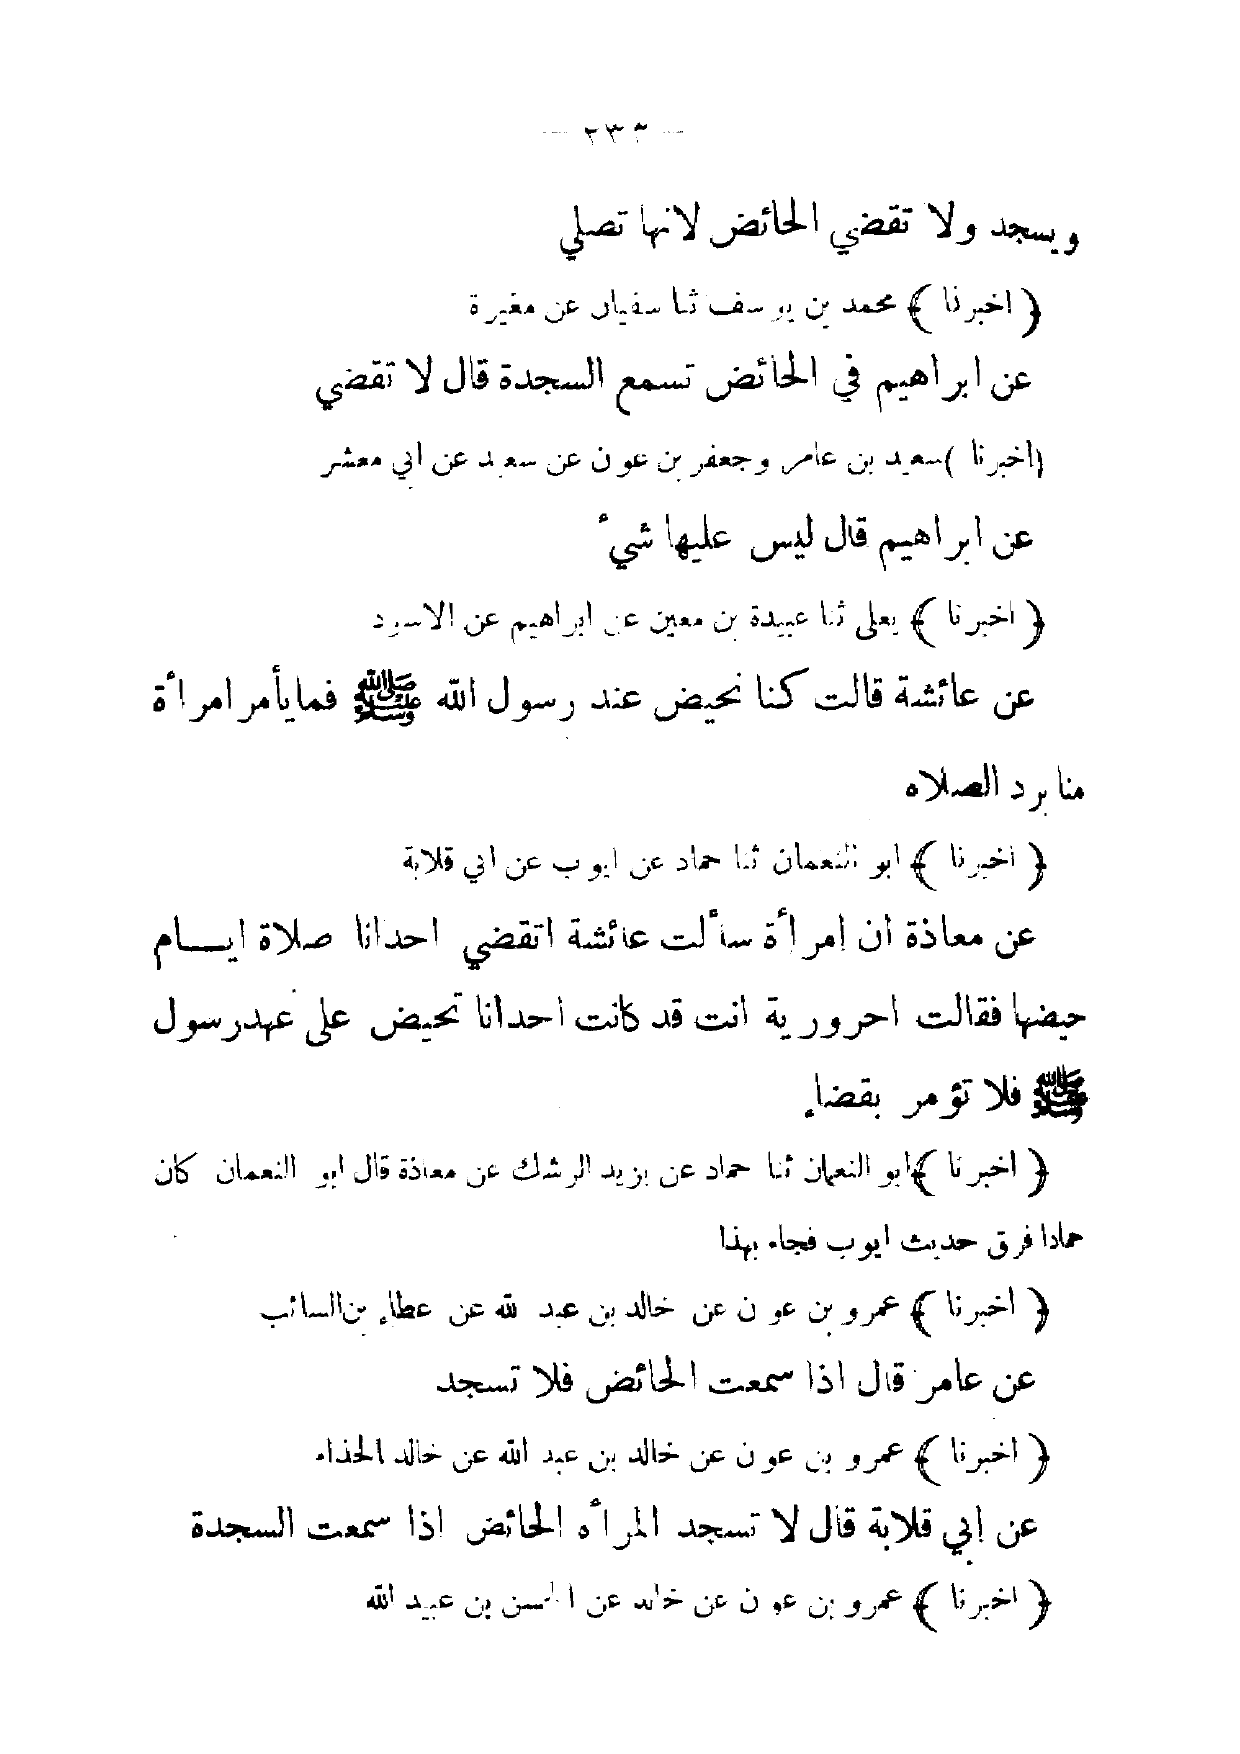 — ٢٣٣ —
ويسجد ولا تقضي الحائض لانها تصلي
﴿ اخبرنا ﴾ محمد بن يوسف ثنا سفيان عن مغيرة
عن ابراهيم في الحائض تسمع السجدة قال لا تقضي
(اخبرنا )سعيد بن عامر وجعفر بن عون عن سعيد عن ابي معشر
عن ابراهيم قال ليس عليها شيءٌ
﴿ اخبرنا ﴾ يعلى ثنا عبيدة بن معين عن ابراهيم عن الاسود
عن عائشة قالت كنا نحيض عند رسول الله ﷺ فما يأمر امرأة
منا برد الصلاه
﴿ اخبرنا ﴾ ابو النعمان ثنا حماد عن ايوب عن ابي قلابة
عن معاذة ان امرأة سألت عائشة اتقضي احدانا صلاة ايـــام
حيضها فقالت احرورية انت قد كانت احدانا تحيض على عهد رسول
ﷺ فلا تؤمر بقضاء
﴿ اخبرنا ﴾ابو النعمان ثنا حماد عن يزيد الرشك عن معاذة قال ابو النعمان كان
حمادا فرق حديث ايوب فجاء بهذا
﴿ اخبرنا ﴾ عمرو بن عون عن خالد بن عبد لله عن عطاء بن السائب
عن عامر قال اذا سمعت الحائض فلا تسجد
﴿ اخبرنا ﴾ عمرو بن عون عن خالد بن عبد الله عن خالد الحذاء
عن ابي قلابة قال لا تسجد المرأه الحائض اذا سمعت السجدة
﴿ اخبرنا ﴾ عمرو بن عون عن خالد عن الحسن بن عبيد الله